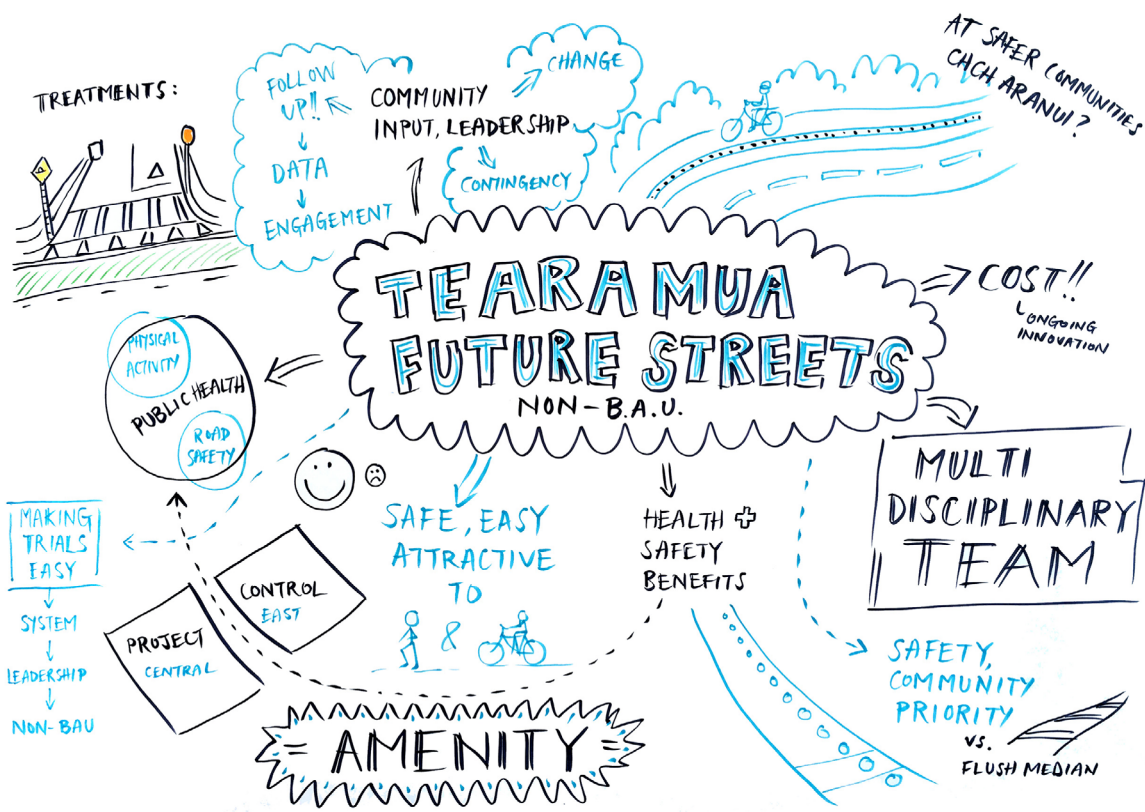 TREATMENTS:
FOLLOW
UP!!
DATA
ENGAGEMENT
COMMUNITY
INPUT, LEADERSHIP
CHANGE
CONTINGENCY
AT SAFER COMMUNITIES
CHCH ARANUI?
TEARAMUA
FUTURE STREETS
NON-B.A.U.
COST!!
ONGOING
INNOVATION
PHYSICAL
ACTIVITY
PUBLIC HEALTH
ROAD
SAFETY
MULTI
DISCIPLINARY
TEAM
MAKING
TRIALS
EASY
SYSTEM
LEADERSHIP
NON-BAU
CONTROL
EAST
PROJECT
CENTRAL
SAFE, EASY
ATTRACTIVE
TO
&
HEALTH +
SAFETY
BENEFITS
SAFETY,
COMMUNITY
PRIORITY
VS.
FLUSH MEDIAN
= AMENITY =